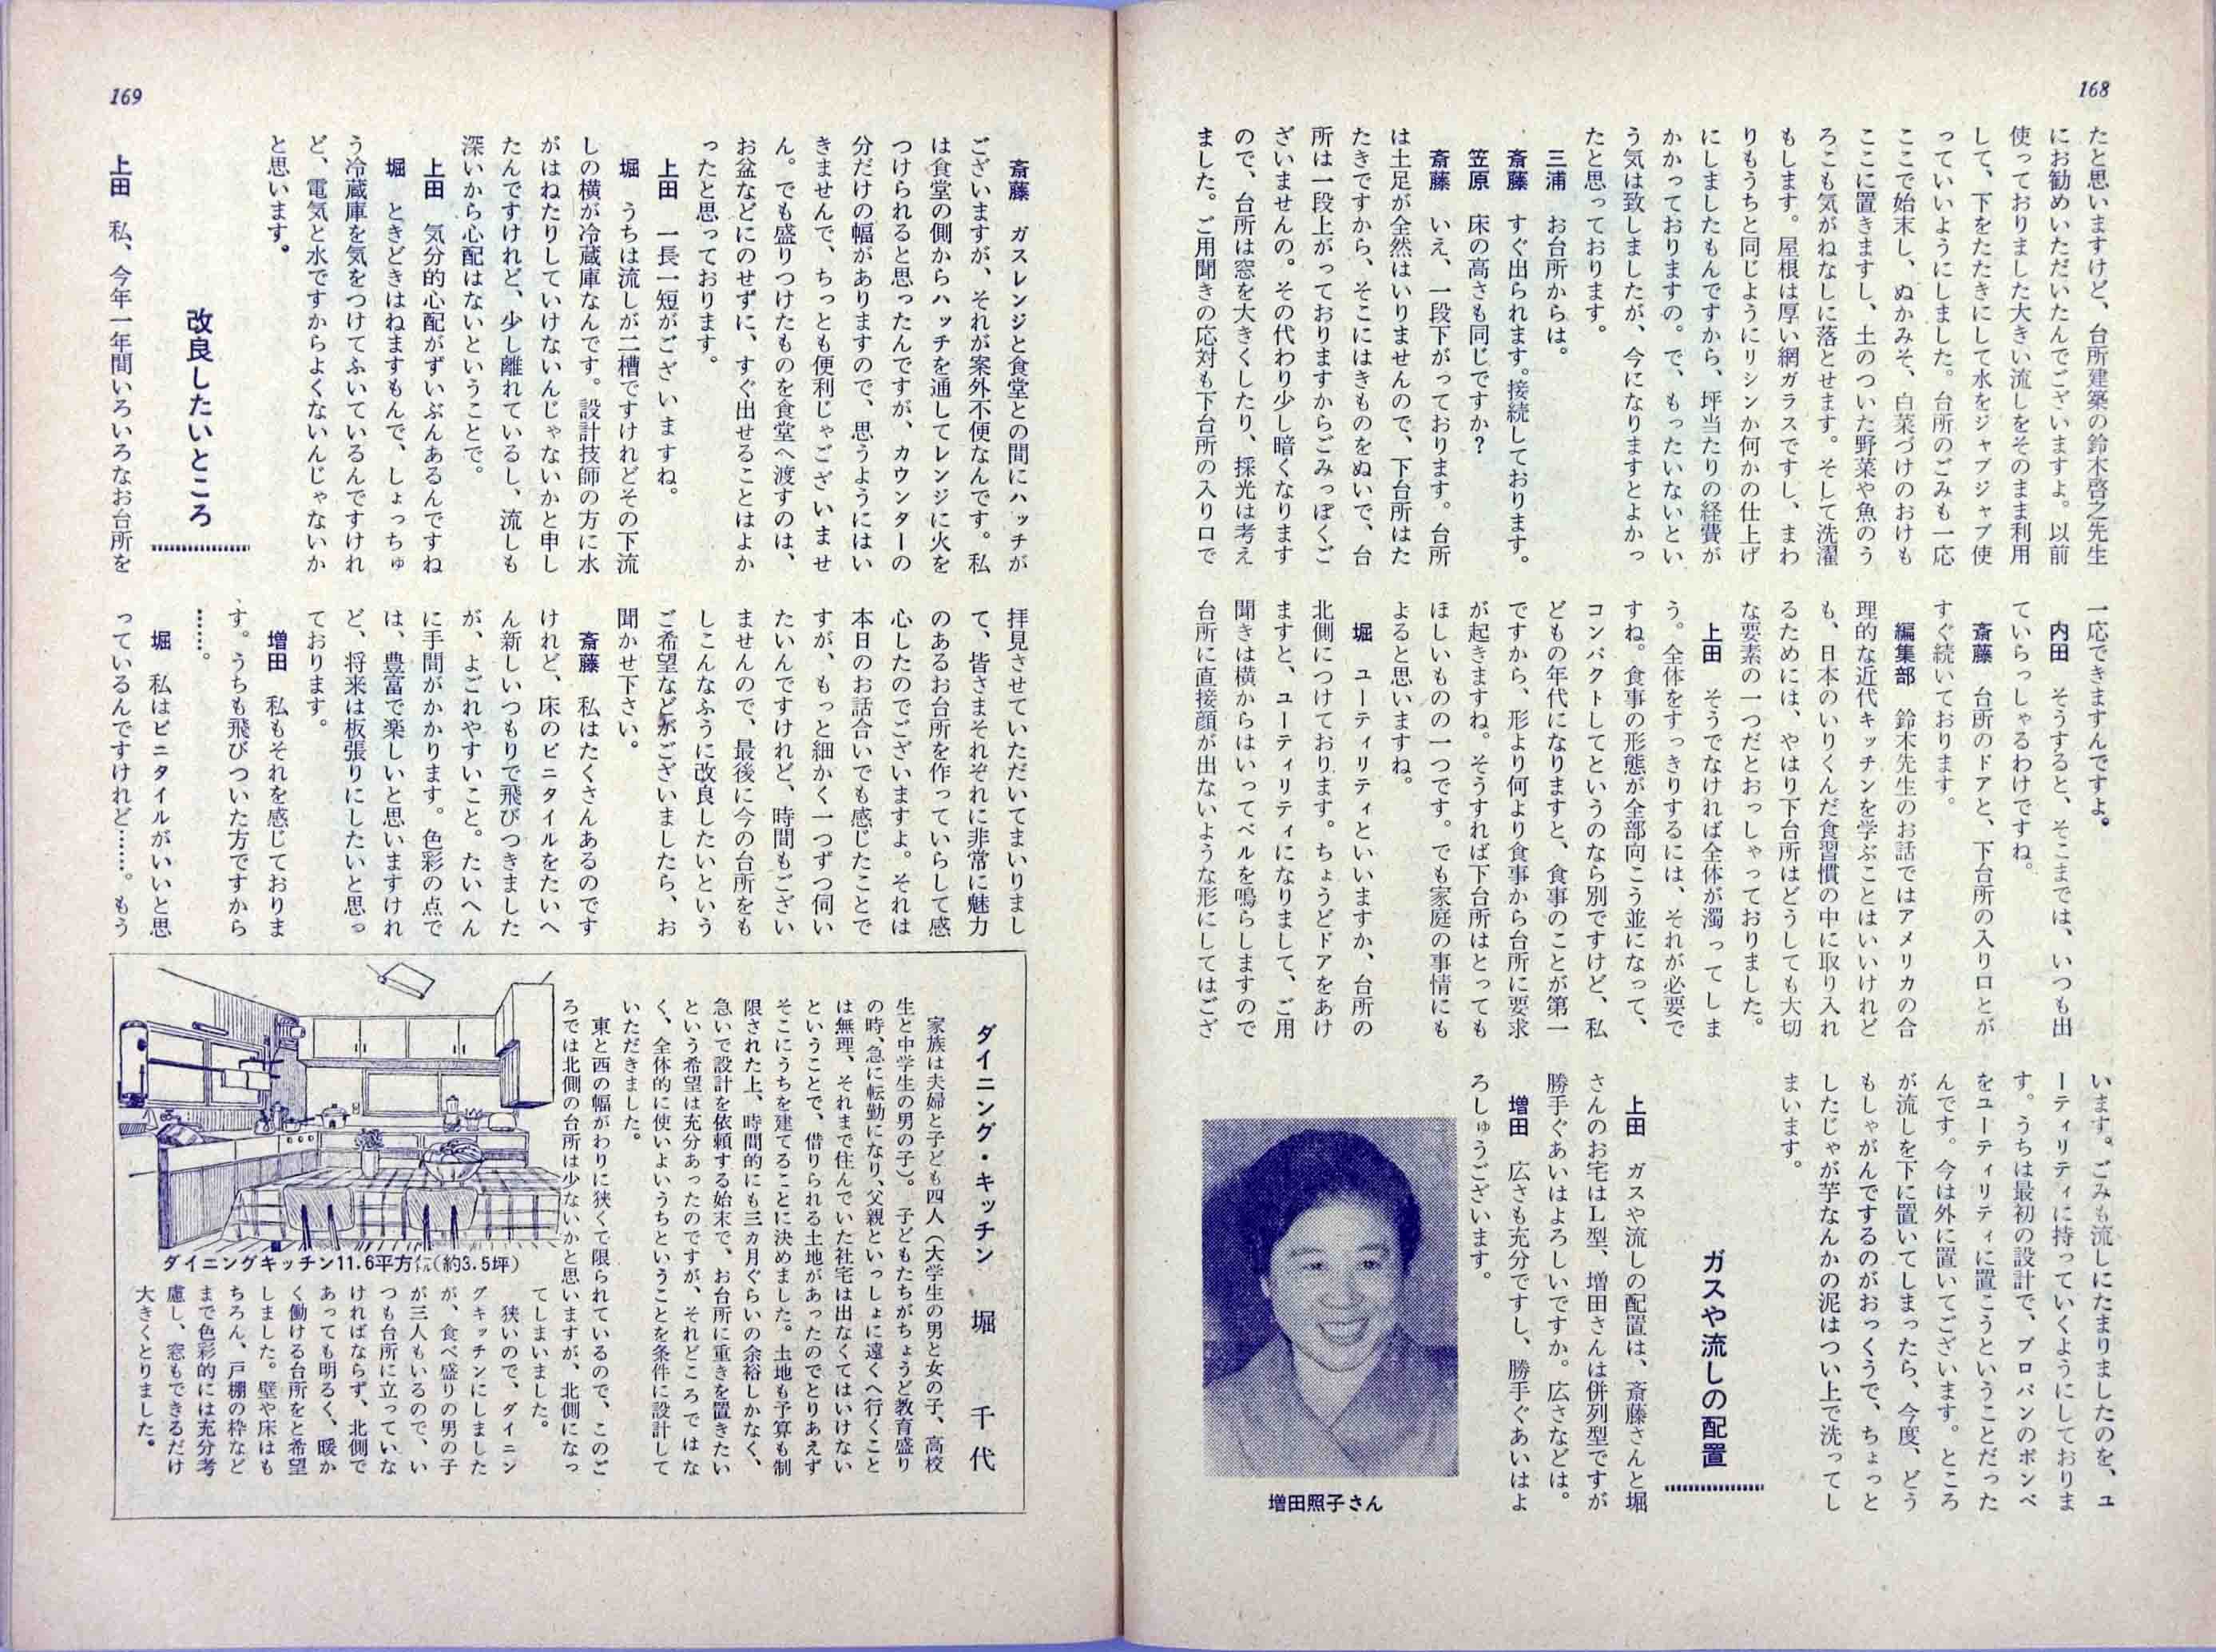 168
たと思いますけど、台所建築の鈴木啓之先生
にお勧めいただいたんでございますよ。以前
使っておりました大きい流しをそのまま利用
して、下をたたきにして水をジャブジャブ使
っていいようにしました。台所のごみも一応
ここで始末し、ぬかみそ、白菜づけのおけも
ここに置きますし、土のついた野菜や魚のう
ろこも気がねなしに落とせます。そして洗濯
もします。屋根は厚い網ガラスですし、まわ
りもうちと同じようにリシンか何かの仕上げ
にしましたもんですから、坪当たりの経費が
かかっておりますの。で、もったいないとい
う気は致しましたが、今になりますとよかっ
たと思っております。
三浦　お台所からは。
斎藤　すぐ出られます。接続しております。
笠原　床の高さも同じですか?
斎藤　いえ、一段下がっております。台所
は土足が全然はいりませんので、下台所はた
たきですから、そこにはきものをぬいで、台
所は一段上がっておりますからごみっぽくご
ざいませんの。その代わり少し暗くなります
ので、台所は窓を大きくしたり、採光は考え
ました。ご用聞きの応対も下台所の入り口で
一応できますんですよ。
内田　そうすると、そこまでは、いつも出
ていらっしゃるわけですね。
斎藤　台所のドアと、下台所の入り口とが
すぐ続いております。
編集部　鈴木先生のお話ではアメリカの合
理的な近代キッチンを学ぶことはいいけれど
も、日本のいりくんだ食習慣の中に取り入れ
るためには、やはり下台所はどうしても大切
な要素の一つだとおっしゃっておりました。
上田　そうでなければ全体が濁ってしま
う。全体をすっきりするには、それが必要で
すね。食事の形態が全部向こう並になって、
コンパクトしてというのなら別ですけど、私
どもの年代になりますと、食事のことが第一
ですから、形より何より食事から台所に要求
が起きますね。そうすれば下台所はとっても
ほしいものの一つです。でも家庭の事情にも
よると思いますね。
堀　ユーティリティといいますか、台所の
北側につけております。ちょうどドアをあけ
ますと、ユーティリティになりまして、ご用
聞きは横からはいってベルを鳴らしますので
台所に直接顔が出ないような形にしてはござ
います。ごみも流しにたまりましたのを、ユ
ーティリティに持っていくようにしておりま
す。うちは最初の設計で、プロパンのボンベ
をユーティリティに置こうということだった
んです。今は外に置いてございます。ところ
が流しを下に置いてしまったら、今度、どう
もしゃがんでするのがおっくうで、ちょっと
したじゃが芋なんかの泥はつい上で洗ってし
まいます。
ガスや流しの配置
上田　ガスや流しの配置は、斎藤さんと堀
さんのお宅はL型、増田さんは併列型ですが
勝手ぐあいはよろしいですか。広さなどは。
増田　広さも充分ですし、勝手ぐあいはよ
ろしゅうございます。
増田照子さん
169
斎藤　ガスレンジと食堂との間にハッチが
ございますが、それが案外不便なんです。私
は食堂の側からハッチを通してレンジに火を
つけられると思ったんですが、カウンターの
分だけの幅がありますので、思うようにはい
きませんで、ちっとも便利じゃございませ
ん。でも盛りつけたものを食堂へ渡すのは、
お盆などにのせずに、すぐ出せることはよか
ったと思っております。
上田　一長一短がございますね。
堀　うちは流しが二槽ですけれどその下流
しの横が冷蔵庫なんです。設計技師の方に水
がはねたりしていけないんじゃないかと申し
たんですけれど、少し離れているし、流しも
深いから心配はないということで。
上田　気分的心配がずいぶんあるんですね
堀　ときどきはねますもんで、しょっちゅ
う冷蔵庫を気をつけてふいているんですけれ
ど、電気と水ですからよくないんじゃないか
と思います。
改良したいところ
上田　私、今年一年間いろいろなお台所を
拝見させていただいてまいりまし
て、皆さまそれぞれに非常に魅力
のあるお台所を作っていらして感
心したのでございますよ。それは
本日のお話合いでも感じたことで
すが、もっと細かく一つずつ伺い
たいんですけれど、時間もござい
ませんので、最後に今の台所をも
しこんなふうに改良したいという
ご希望などがございましたら、お
聞かせ下さい。
斎藤　私はたくさんあるのです
けれど、床のビニタイルをたいへ
ん新しいつもりで飛びつきました
が、よごれやすいこと。たいへん
に手間がかかります。色彩の点で
は、豊富で楽しいと思いますけれ
ど、将来は板張りにしたいと思っ
ております。
増田　私もそれを感じておりま
す。うちも飛びついた方ですから
……。
堀　私はビニタイルがいいと思
っているんですけれど……。もう
ダイニング・キッチン　堀　千代
家族は夫婦と子ども四人（大学生の男と女の子、高校
生と中学生の男の子）。子どもたちがちょうど教育盛り
の時、急に転勤になり、父親といっしょに遠くへ行くこと
は無理、それまで住んでいた社宅は出なくてはいけない
ということで、借りられる土地があったのでとりあえず
そこにうちを建てることに決めました。土地も予算も制
限された上、時間的にも三ヵ月ぐらいの余裕しかなく、
急いで設計を依頼する始末で、お台所に重きを置きたい
という希望は充分あったのですが、それどころではな
く、全体的に使いよいうちということを条件に設計して
いただきました。
東と西の幅がわりに狭くて限られているので、このご
ろでは北側の台所は少ないかと思いますが、北側になっ
てしまいました。
狭いので、ダイニン
グキッチンにしました
が、食べ盛りの男の子
が三人もいるので、い
つも台所に立っていな
ければならず、北側で
あっても明るく、暖か
く働ける台所をと希望
しました。壁や床はも
ちろん、戸棚の枠など
まで色彩的には充分考
慮し、窓もできるだけ
大きくとりました。
ダイニングキッチン11.6平方㍍(約3.5坪)